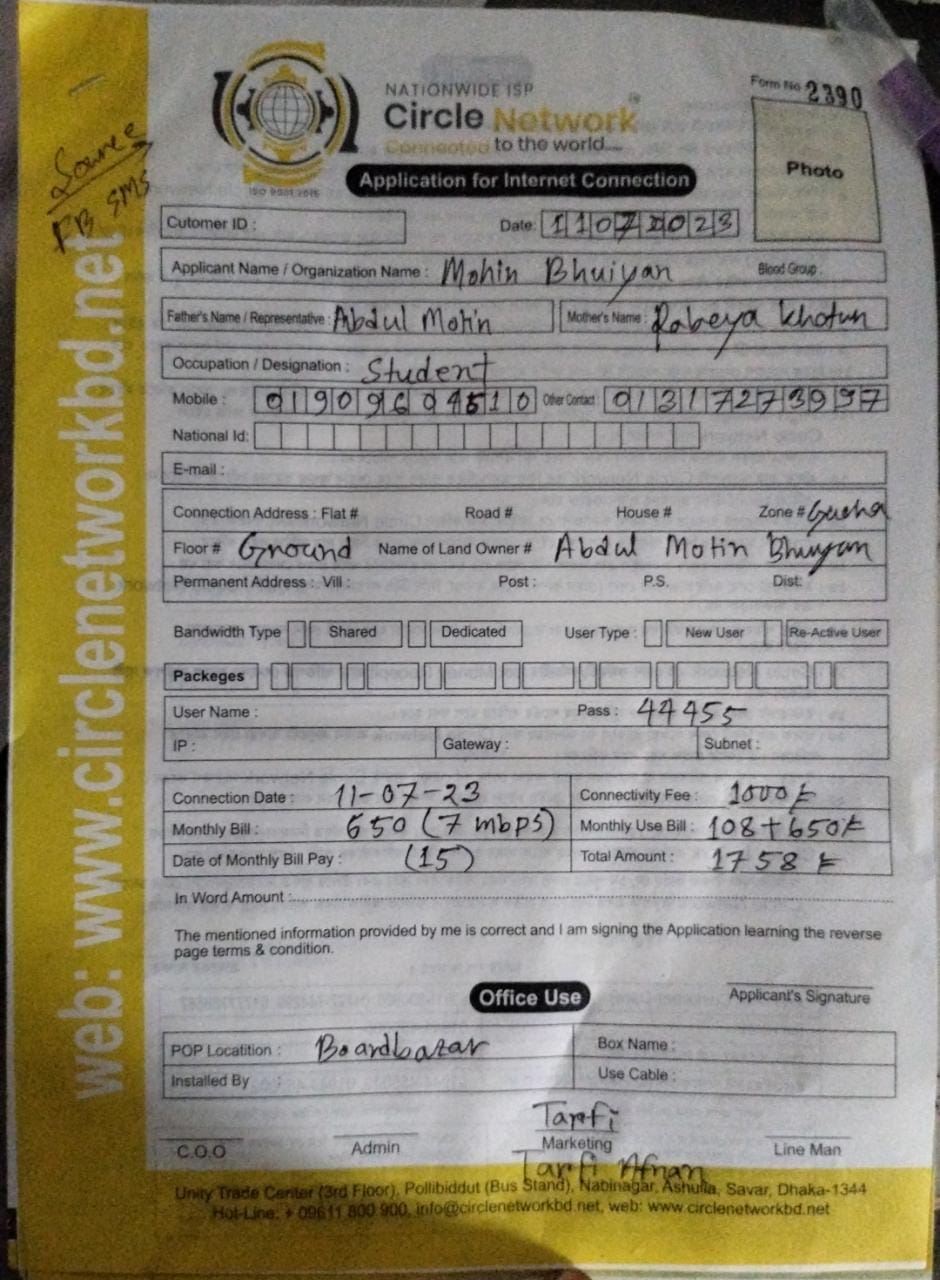 NATIONWIDE ISP
Circle Network
Connected to the world....
ISO 9001:2015
Form No 2390
Photo
Application for Internet Connection
Source
FB SMS
web: www.circlenetworkbd.net
Cutomer ID :
Date: 11072023
Applicant Name / Organization Name : Mohin Bhuiyan Blood Group :
Father's Name / Representative : Abdul Motin Mother's Name : Rabeya Khatun
Occupation / Designation : Student
Mobile : 01909604510 Other Contact : 01317273997
National Id:
E-mail :
Connection Address : Flat # Road # House # Zone #
Floor # Ground Name of Land Owner # Abdul Motin Bhuiyan
Permanent Address : Vill : Post : P.S. Dist:
Bandwidth Type Shared Dedicated User Type : New User Re-Active User
Packeges
User Name : Pass : 44455
IP : Gateway : Subnet :
Connection Date : 11-07-23 Connectivity Fee : 1000/-
Monthly Bill : 650 (7 mbps) Monthly Use Bill : 108+650/-
Date of Monthly Bill Pay : (15) Total Amount : 1758/-
In Word Amount :
The mentioned information provided by me is correct and I am signing the Application learning the reverse
page terms & condition.
Applicant's Signature
Office Use
POP Locatition : Boardbazar Box Name :
Installed By : Use Cable :
Tarfi
C.O.O Admin Marketing Line Man
Tarfi Afnan
Unity Trade Center (3rd Floor), Pollibiddut (Bus Stand), Nabinagar, Ashulia, Savar, Dhaka-1344
Hot-Line: + 09611 800 900, info@circlenetworkbd.net, web: www.circlenetworkbd.net